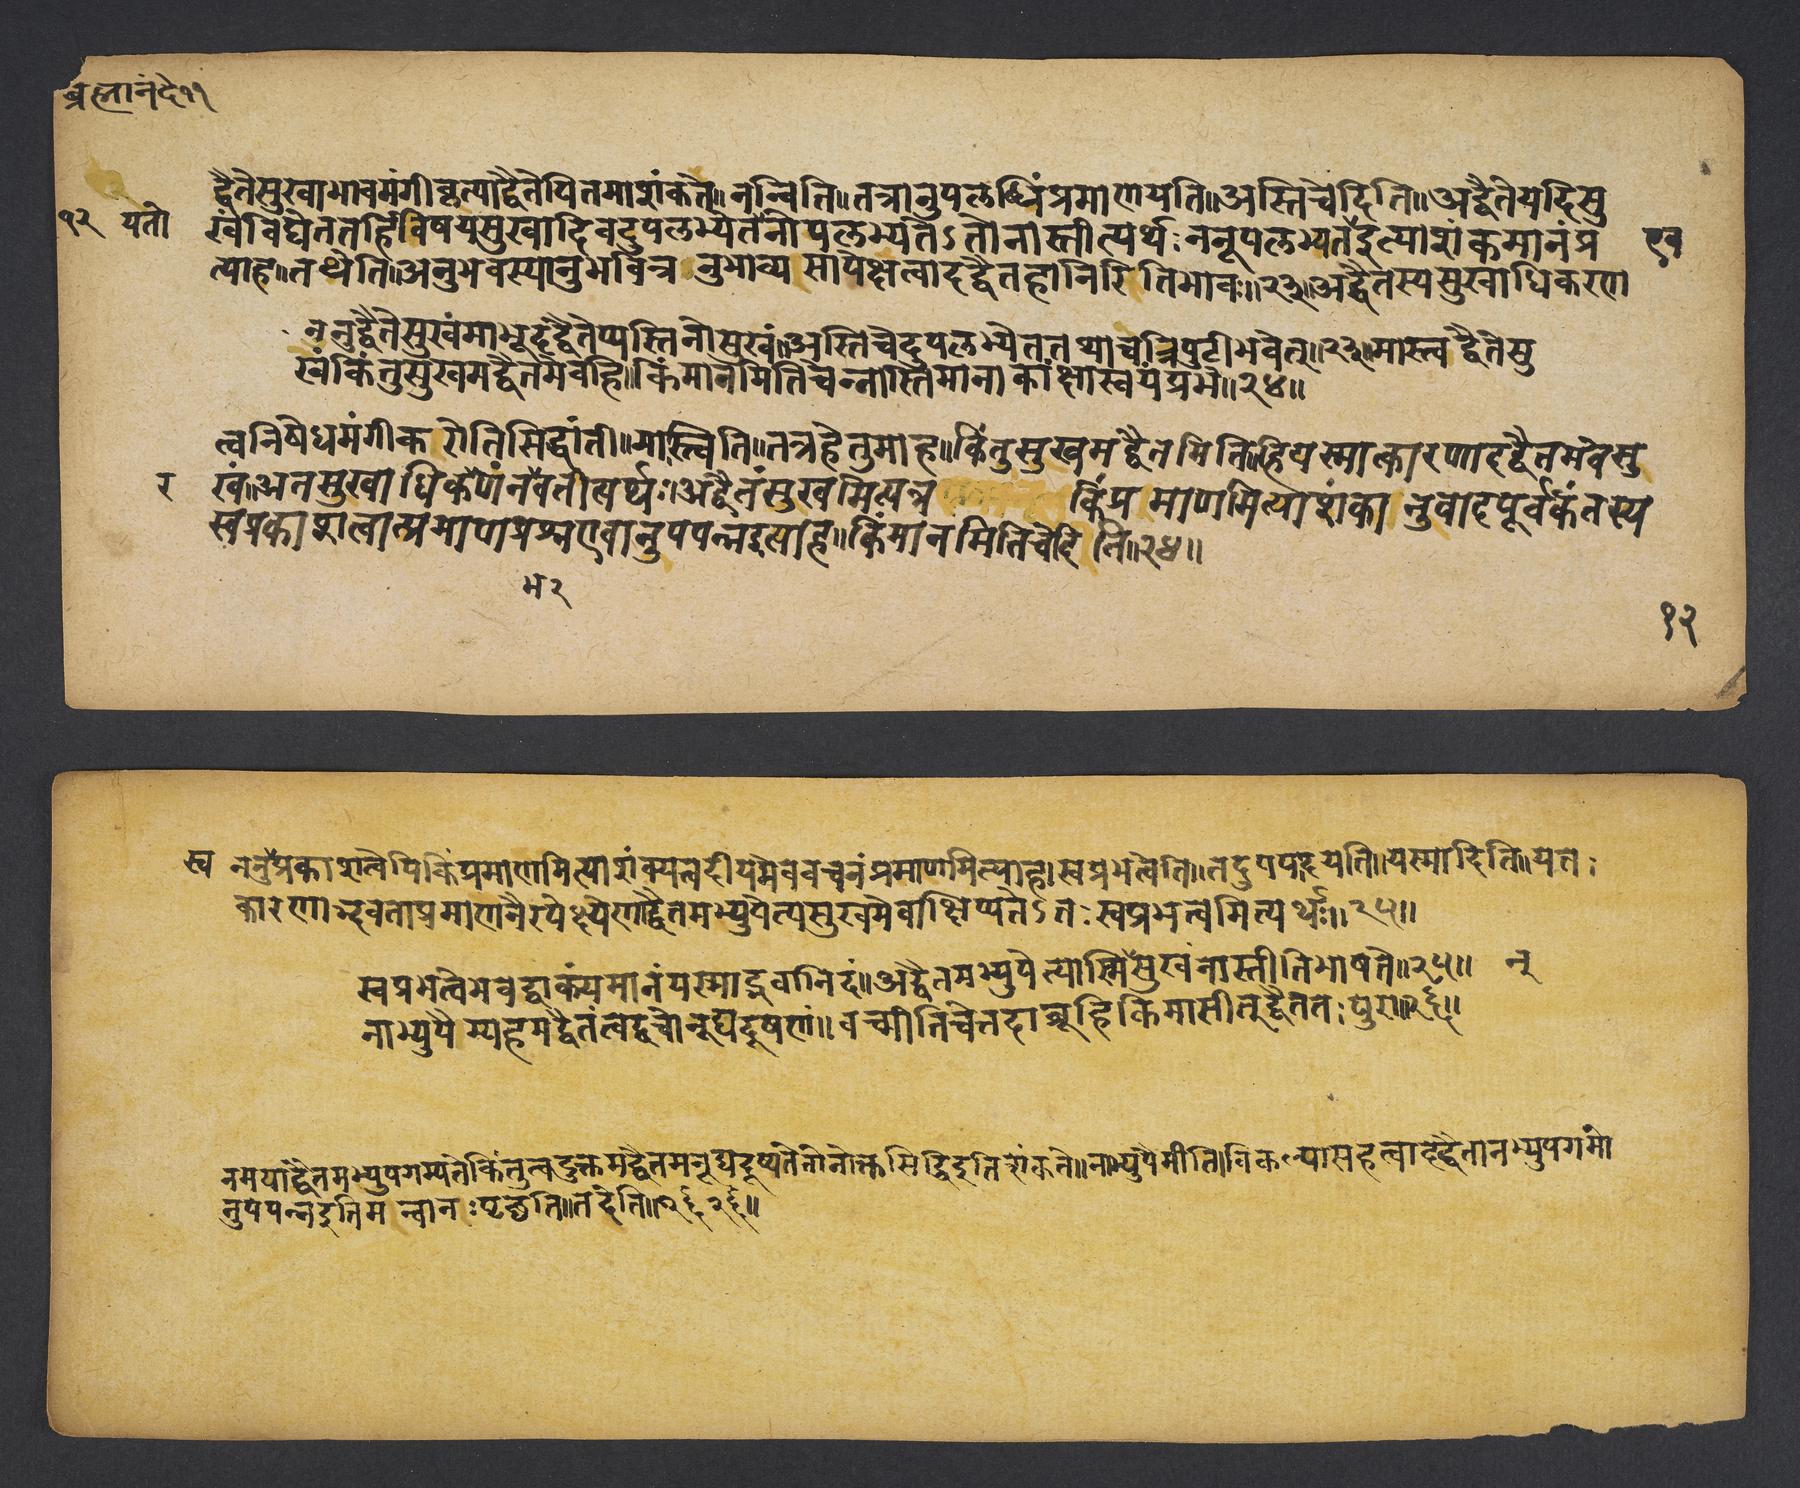 ब्रह्मानंदे११
द्वैतेसुखाभावमंगीकृत्याद्वैतेपितमाशंकते॥नन्विति॥तत्रानुपलब्धिंप्रमाणयति॥अस्तिचेदिति॥अद्वैतेयदिसु
१२ यतो खंविद्येततर्हिविषयसुखादिवदुपलभ्येतनोपलभ्यतेऽतोनास्तीत्यर्थः ननूपलभ्यतइत्याशंकमानंप्र एव
त्याह॥तथेति॥अनुभवस्यानुभवित्रनुभाव्यसापेक्षत्वादद्वैतहानिरितिभावः॥२३॥अद्वैतस्यसुखाधिकरण
ननुद्वैतेसुखंमाभूदद्वैतेप्यस्तिनोसुखं॥अस्तिचेदुपलभ्येततथाचत्रिपुटीभवेत्॥२३॥मास्त्वद्वैतेसु
खंकिंतुसुखमद्वैतमेवहि॥किंमानमितिचेन्नास्तिमानाकांक्षास्वयंप्रभे॥२४॥
त्वनिषेधमंगीकरोतिसिद्धांती॥मास्त्विति॥तत्रहेतुमाह॥किंतुसुखमद्वैतमिति॥हियस्मात्कारणादद्वैतमेवसु
र खं॥अतसुखाधिकणंनेवेतीत्यर्थः॥अद्वैतंसुखमित्यत्र किंप्रमाणमित्याशंकानुवादपूर्वकंतस्य
स्वप्रकाशत्वात्प्रमाणप्रश्नएवानुपपन्नइत्याह॥किंमानमितिचेदिति॥२४॥
भ२
१२
स्व ननुप्रकाशत्वेपिकिंप्रमाणमित्याशंक्यत्वदीयमेववचनंप्रमाणमित्याह॥स्वप्रभत्वेति॥तदुपपादयति॥यस्मादिति॥यतः
कारणाद्भवताप्रमाणनैरपेक्ष्येणाद्वैतमभ्युपेत्यसुखमेवाक्षिप्यतेऽतःस्वप्रभत्वमित्यर्थः॥२५॥
स्वप्रभत्वेभवद्वाक्यंमानंयस्माद्भवानिदं॥अद्वैतमभ्युपेत्यास्मिंसुखंनास्तीतिभाषते॥२५॥ न्
नाभ्युपैम्यहमद्वैतंत्वद्वचोनूद्यदूषणं॥वच्मीतिचेत्तदाब्रूहिकिमासीत्द्वैततःपुरा॥२६॥
नमयाद्वैतमभ्युपगम्यतेकिंतुत्वदुक्तमद्वैतमनूद्यदूष्यतेतोनोक्तसिद्धिरितिशंकते॥नाभ्युपैमीति॥विकल्पासहत्वादद्वैतानभ्युपगमो
नुपपन्नइतिमन्वानःपृच्छति॥तदेति॥२६२६॥